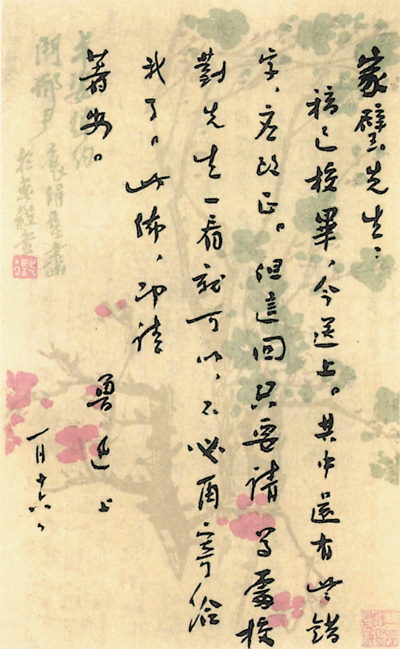 家璧先生：
稿已校畢，今送上。其中還有些錯
字，應改正。但這回只要請尊處校
對先生一看就可以，不必再寄給
我了。此佈，即請
著安。
魯迅上
一月十六日